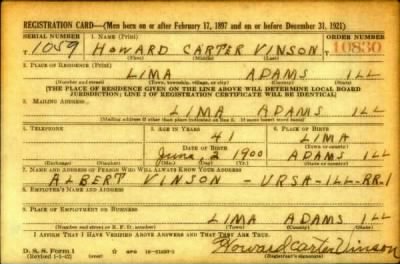 REGISTRATION CARD—(Men born on or after February 17, 1897 and on or before December 31, 1921)
SERIAL NUMBER 1. NAME (Print) ORDER NUMBER
T 1059 HOWARD CARTER VINSON 10830
(First) (Middle) (Last)
2. PLACE OF RESIDENCE (Print)
LIMA ADAMS ILL
(Number and street) (Town, township, village, or city) (County) (State)
[THE PLACE OF RESIDENCE GIVEN ON THE LINE ABOVE WILL DETERMINE LOCAL BOARD
JURISDICTION; LINE 2 OF REGISTRATION CERTIFICATE WILL BE IDENTICAL]
3. MAILING ADDRESS
LIMA ADAMS ILL
[Mailing address if other than place indicated on line 2. If same insert word same]
4. TELEPHONE 5. AGE IN YEARS 6. PLACE OF BIRTH
41 LIMA
DATE OF BIRTH (Town or county)
June 2 1900 ADAMS ILL
(Exchange) (Number) (Mo.) (Day) (Yr.) (State or country)
7. NAME AND ADDRESS OF PERSON WHO WILL ALWAYS KNOW YOUR ADDRESS
ALBERT VINSON - URSA-ILL-RR.1
8. EMPLOYER'S NAME AND ADDRESS
9. PLACE OF EMPLOYMENT OR BUSINESS
LIMA ADAMS ILL
(Number and street or R. F. D. number) (Town) (County) (State)
I AFFIRM THAT I HAVE VERIFIED ABOVE ANSWERS AND THAT THEY ARE TRUE.
D. S. S. Form 1
(Revised 1-1-42) (over) Howard Carter Vinson
(Registrant's signature)